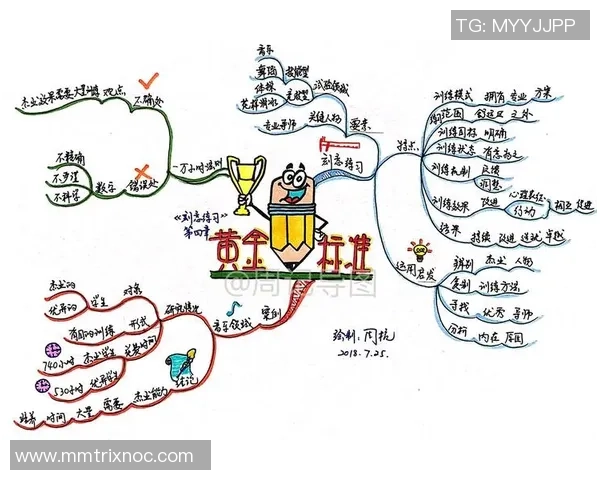 TG: MYYJJPP
《刻意练习》
第四章
黄金标准
@周抗导图
绘制:周抗
2018.7.25.
一万小时法则
正确处
观点
错误处
数字
不精确
不多理
不科学
刻意练习
要素
试验领域
音乐
舞蹈
体操
花样滑冰
技能型
关键人物
专业导师
特点
训练模式 拥有 专业 方案
训练范围 舒适区 之外
训练目标 明确
训练状态 有意为之
训练机制 反馈
调整
训练效果 改进 心理表征
行动
相互促进
结果 持续 改进
运用启发
辨别 杰出 人物
复制 训练方法
寻找 优秀 导师
分析 内在 原因
案例
音乐领域
研究情况
对象 学生
杰出的
优秀的
形式 有目的训练
花费时间
740小时 杰出学生
530小时 优秀学生
结论
杰出能力 需要 大量 时间 培养
www.mmtrixnoc.com